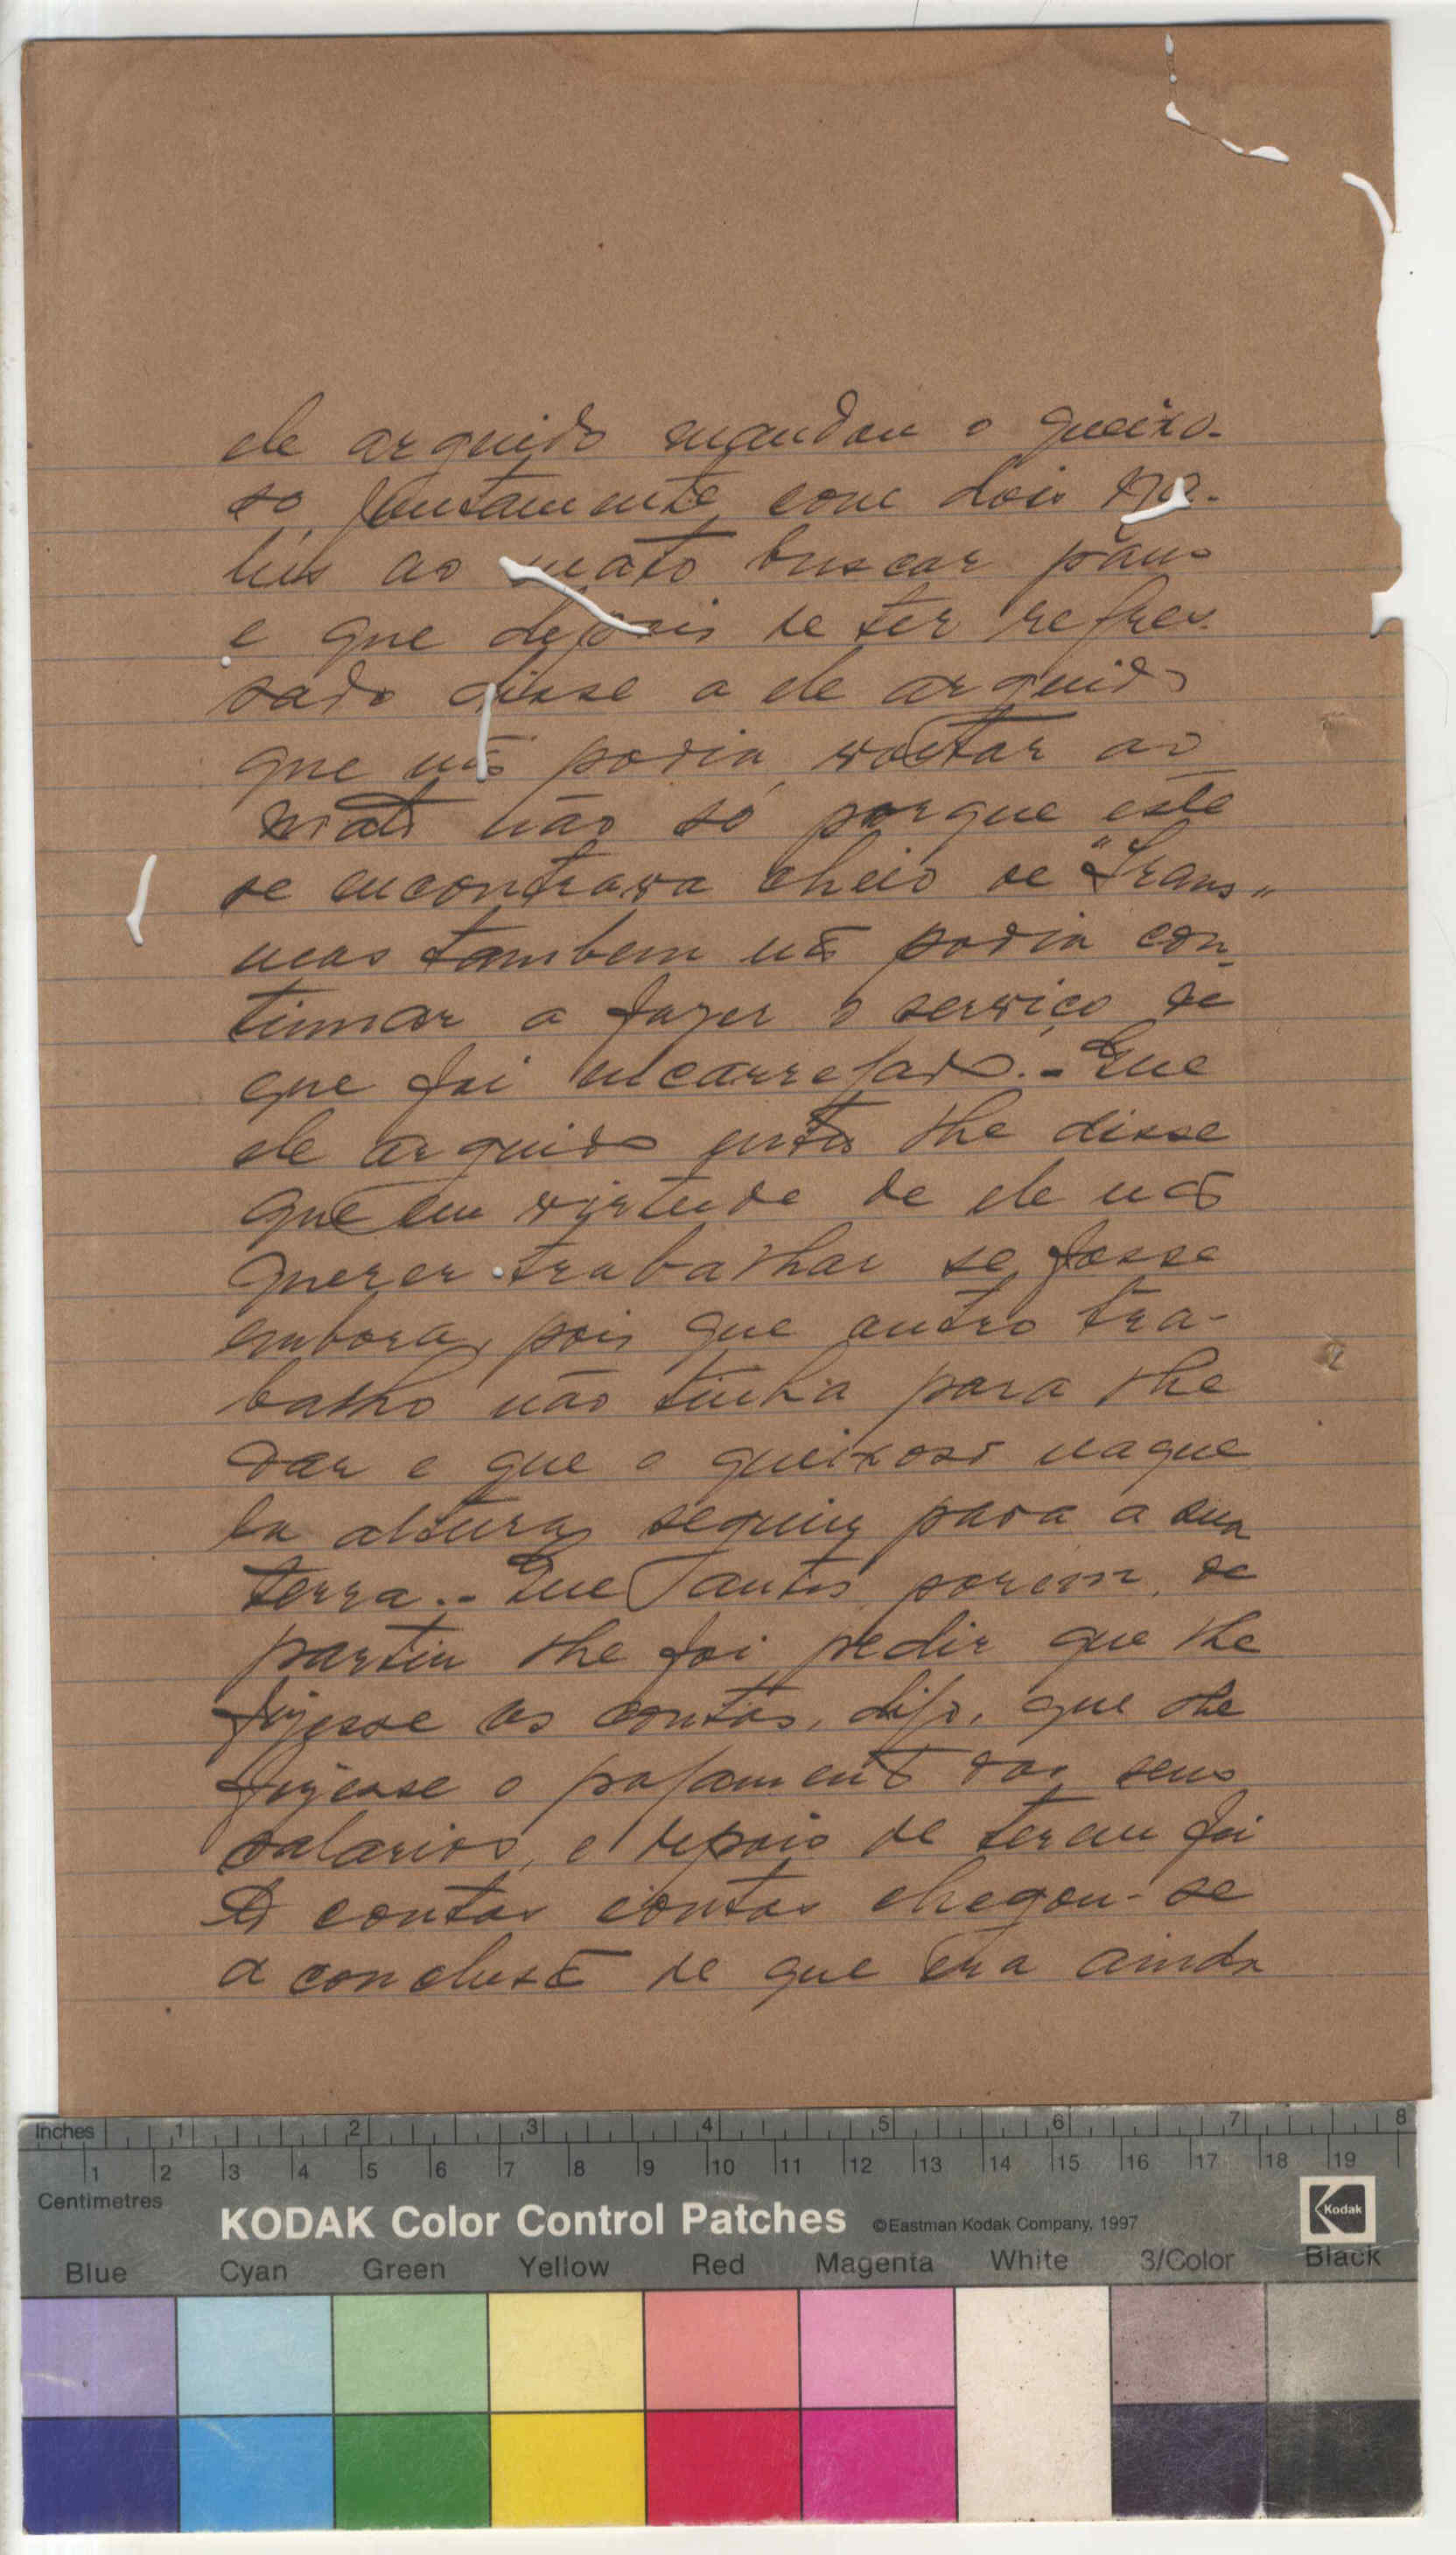 ele arguido mandou o queixo-
so, juntamente com dois
ao mato buscar páus
e que depois de ter regres-
sado disse a ele arguido
que nõ podia voltar ao
mato não só porque este
se encontrava cheio de "Irans"
mas tambem nõ podia con-
tinuar a fazer o serviço de
que foi encarregado.- Que
ele arguido então lhe disse
que em virtude de ele nõ
querer trabalhar se fosse
embora, pois que outro tra-
balho não tinha para lhe
dar e que o queixoso naque
la altura seguiu para a sua
terra.- Que antes porem, de
partir lhe foi pedir que lhe
fizesse as contas, digo, que lhe
fizesse o pagamento dos seus
salarios, e depois de terem fei
to contas contas chegou-se
a conclusõ de que era ainda
Inches 1 2 3 4 5 6 7 8
1 2 3 4 5 6 7 8 9 10 11 12 13 14 15 16 17 18 19
Centimetres
KODAK Color Control Patches ©Eastman Kodak Company, 1997 Kodak
Blue Cyan Green Yellow Red Magenta White 3/Color Black